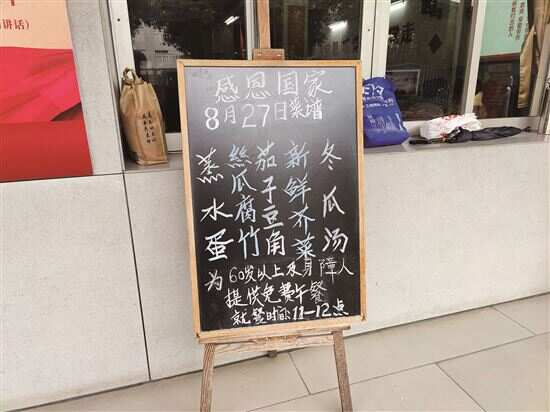 感恩国家
8月27日菜谱
蒸水蛋
絲瓜腐竹
茄子豆角
新鲜芥菜
冬瓜汤
为60岁以上及身障人
提供免费午餐
就餐时间:11—12点
讲话）